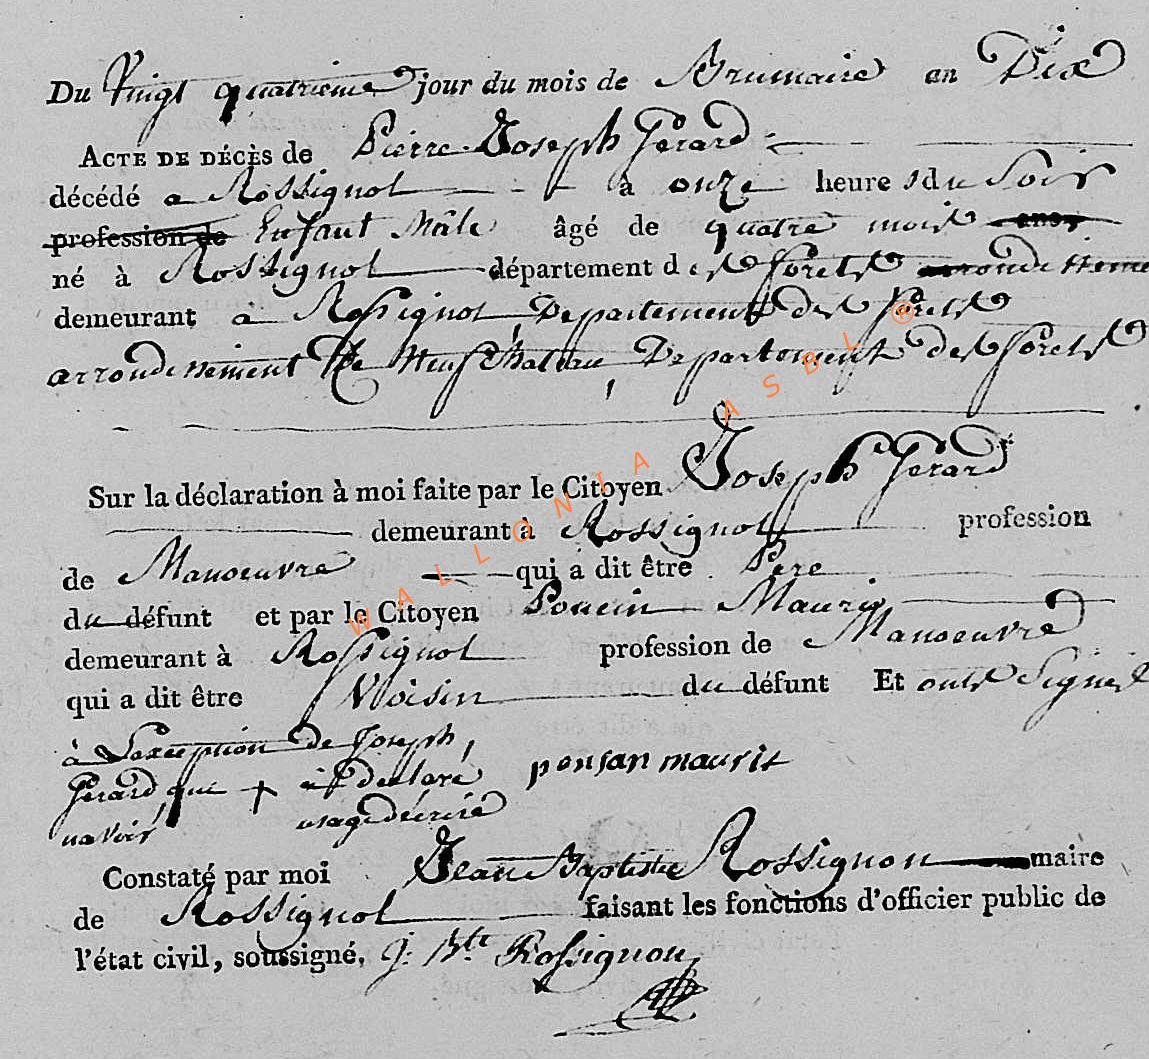 Du Vingt quatrieme jour du mois de Brumaire an Dix
ACTE DE DÉCÈS de Pierre Joseph Gerard
décédé a Rossignol à onze heures du Soir
profession de Enfant Mâle âgé de quatre mois ans
né à Rossignol département des forets arrondissement
demeurant à Rossignol Departement des forets
arrondissement de Neufchateau Departement des forets
Sur la déclaration à moi faite par le Citoyen Joseph Gerard
demeurant à Rossignol profession
de Manoeuvre qui a dit être Pere
du défunt et par le Citoyen Poncin Mauris
demeurant à Rossignol profession de Manoeuvre
qui a dit être Voisin du défunt Et onts Signés
à L'exception de Joseph
Gerard que + à declaré ponsan maurit
navoir usage décrire
Constaté par moi Jean Baptiste Rossignon maire
de Rossignol faisant les fonctions d'officier public de
l'état civil, soussigné, J: Bte Rossignon
WALLONIA ASBL ®